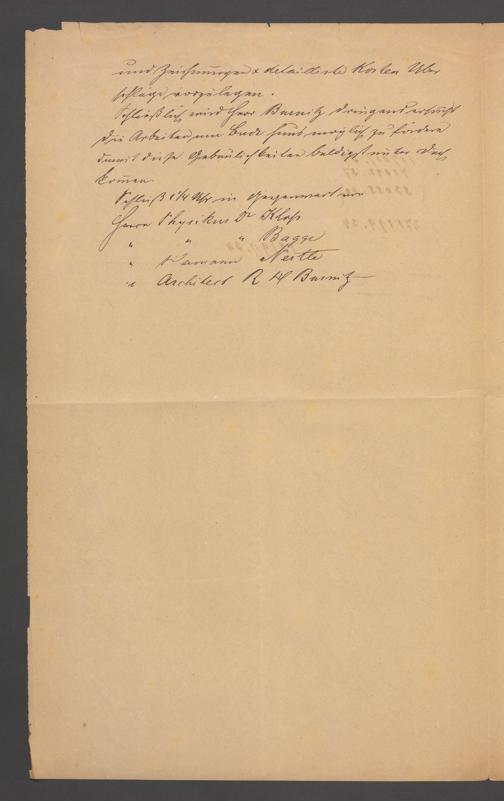 und Zeichnungen & detaillerte Kosten Über
schläge vorzulegen.
Schließlich wird Herr Burnitz dringend ersucht
die Arbeiten am Bade sobald möglich zu fördern
damit diese Gebäulichkeiten baldigst unter Dach
kommen.
Schluß 1¼ Uhr in Gegenwart von
Herrn Physikus Dr Kloß
" " " Bagge
" Nestle
" Architect R H Burnitz